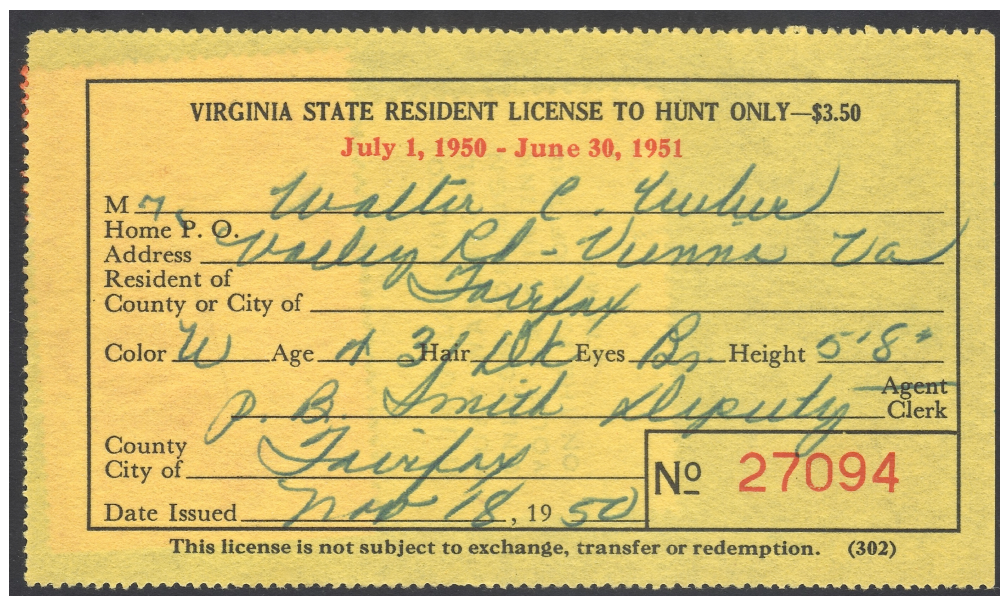 VIRGINIA STATE RESIDENT LICENSE TO HUNT ONLY—$3.50
July 1, 1950 - June 30, 1951
Mr. Walter C.
Home P. O.
Address Valley Rd - Vienna Va
Resident of
County or City of Fairfax
Color W Age Hair Dk Eyes Br. Height 5'8"
Agent
P. B. Smith Deputy Clerk
County
City of Fairfax
No 27094
Date Issued Nov 18, 1950
This license is not subject to exchange, transfer or redemption. (302)